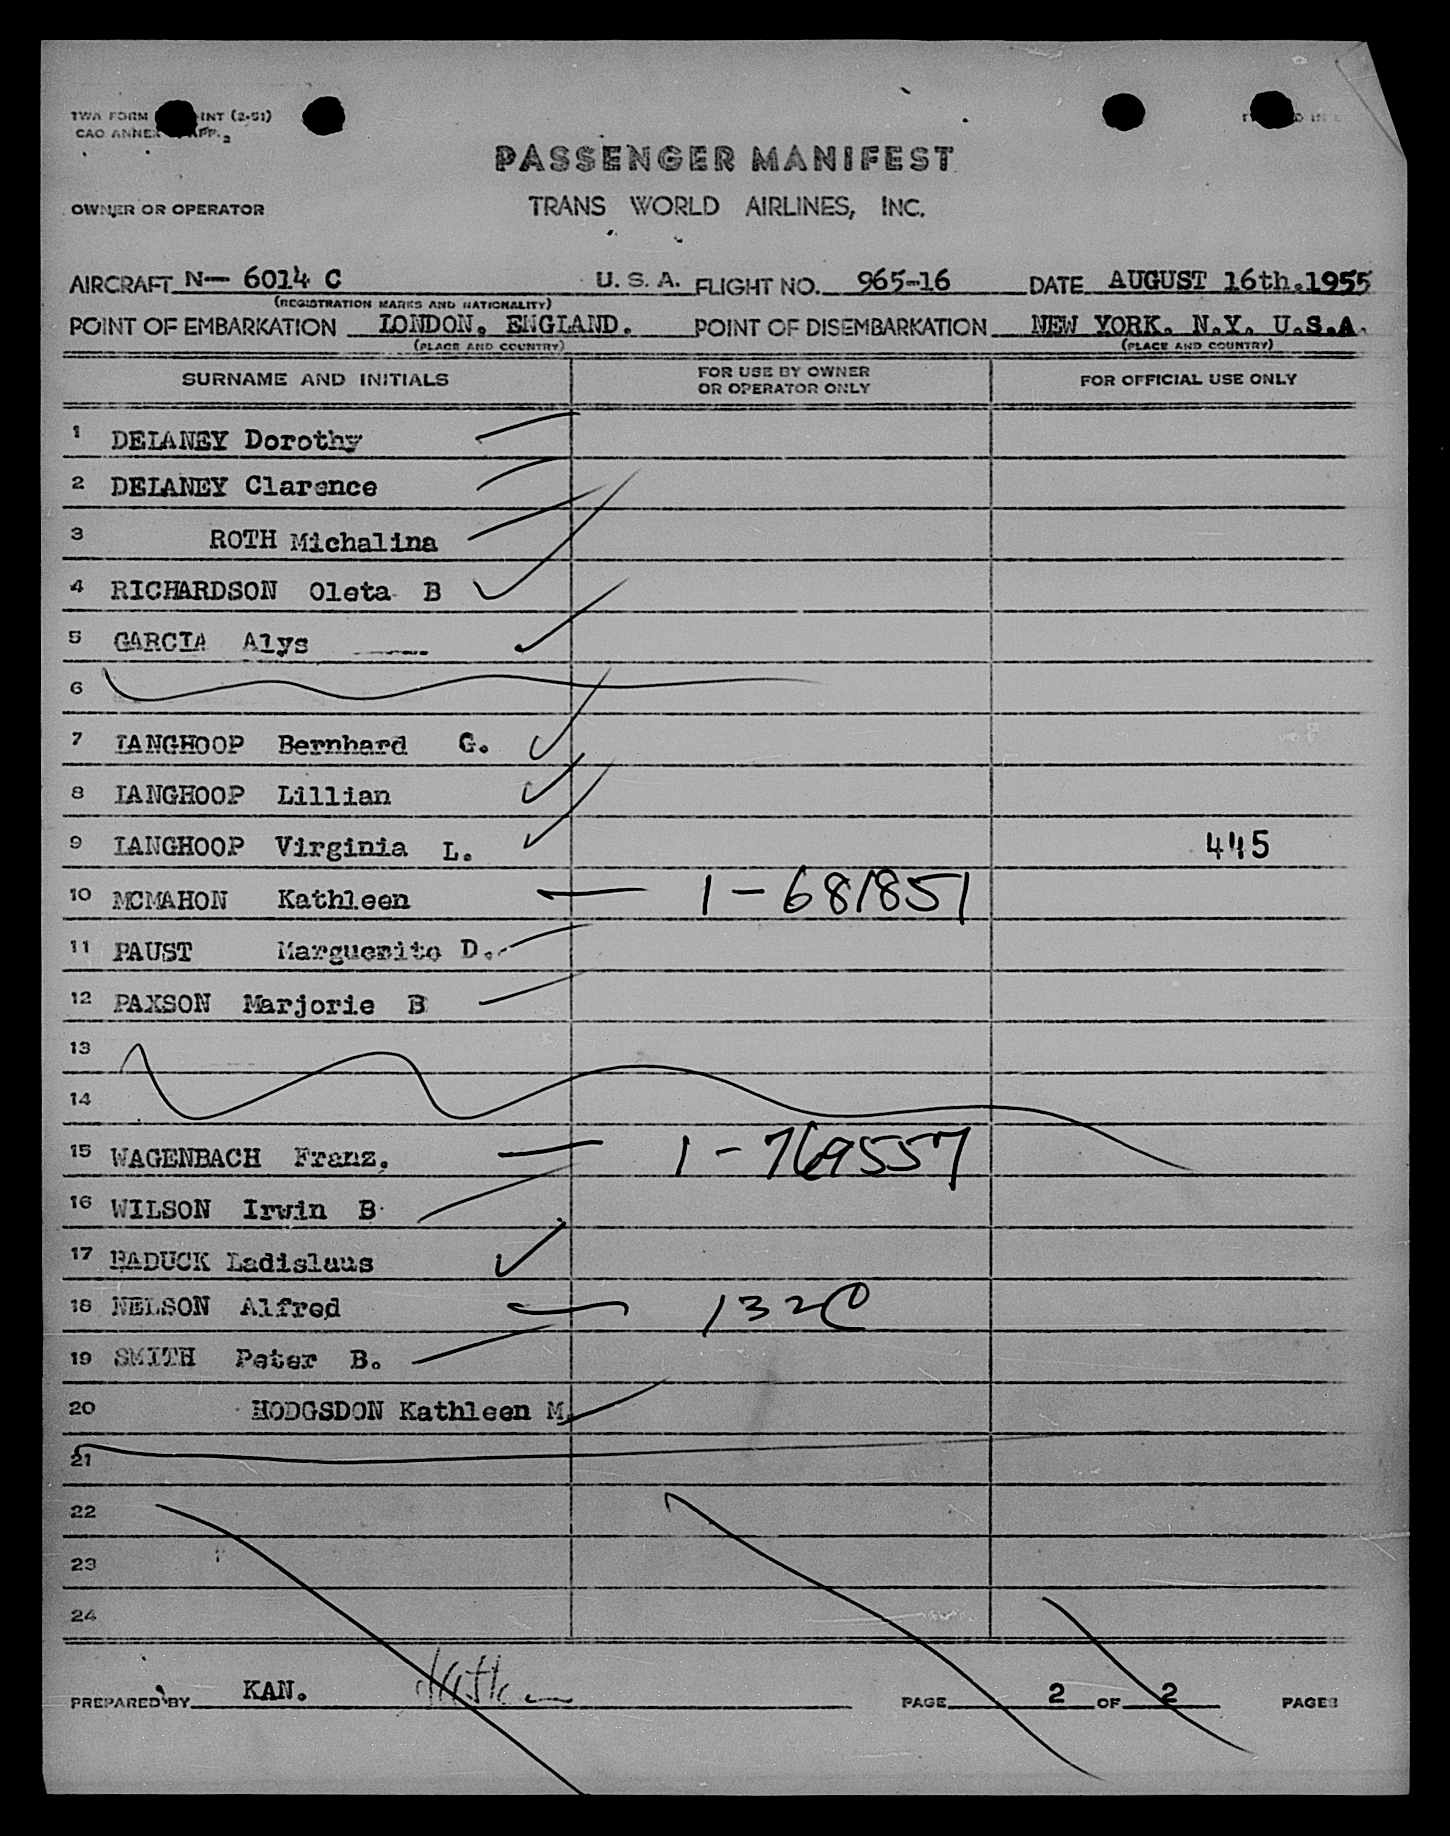 TWA FORM INT (2-51)
CAO ANNEX APP. 2
PASSENGER MANIFEST
OWNER OR OPERATOR TRANS WORLD AIRLINES, INC.
AIRCRAFT N- 6014 C U. S. A. FLIGHT NO. 965-16 DATE AUGUST 16th.1955
(REGISTRATION MARKS AND NATIONALITY)
POINT OF EMBARKATION LONDON. ENGLAND. POINT OF DISEMBARKATION NEW YORK. N.Y. U.S.A.
(PLACE AND COUNTRY) (PLACE AND COUNTRY)
SURNAME AND INITIALS FOR USE BY OWNER OR OPERATOR ONLY FOR OFFICIAL USE ONLY
1 DELANEY Dorothy
2 DELANEY Clarence
3 ROTH Michalina
4 RICHARDSON Oleta B
5 GARCIA Alys
6
7 LANGHOOP Bernhard G.
8 LANGHOOP Lillian
9 LANGHOOP Virginia L. 445
10 MCMAHON Kathleen 1-681851
11 PAUST Marguerite D.
12 PAXSON Marjorie B
13
14
15 WAGENBACH Franz. 1-769557
16 WILSON Irwin B
17 BADUCK Ladislaus
18 NELSON Alfred 132
19 SMITH Peter B.
20 HODGSDON Kathleen M.
21
22
23
24
PREPARED BY KAN. PAGE 2 OF 2 PAGES